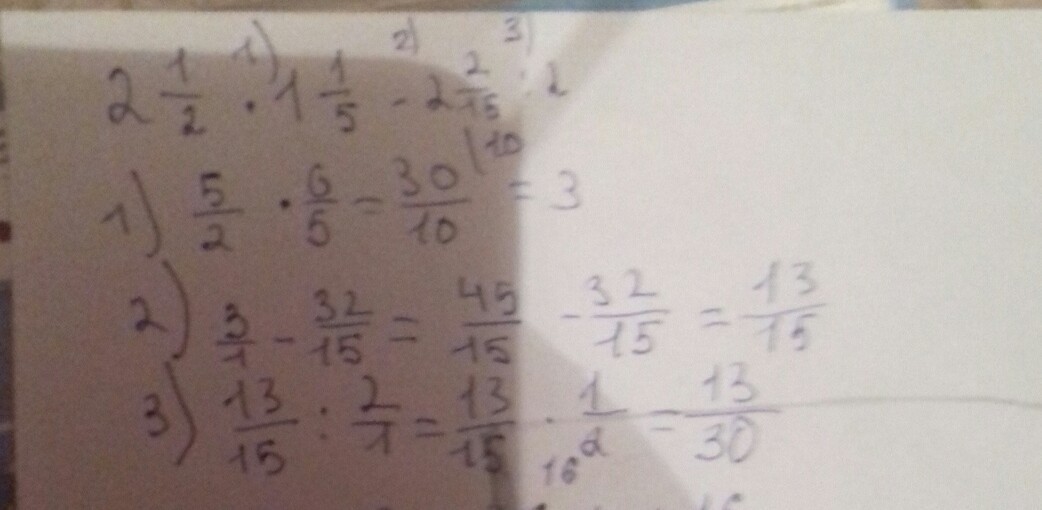 2 1/2 · 1) 1 1/5 - 2) 2 2/15 : 3) 2
1) 5/2 · 6/5 = 30/10 |10 = 3
2) 3/1 - 32/15 = 45/15 - 32/15 = 13/15
3) 13/15 : 2/1 = 13/15 · 1/2 = 13/30
16